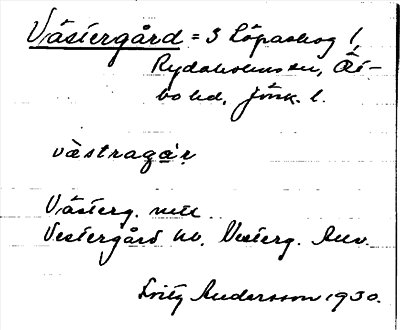 Västergård = S Löpaskog 1,
Rydaholms sn, Öst-
bo hd, Jönk. l.
västragár
Västerg. mtl
Vestergård kb, Westerg. Anv.
Fritz Andersson 1930.